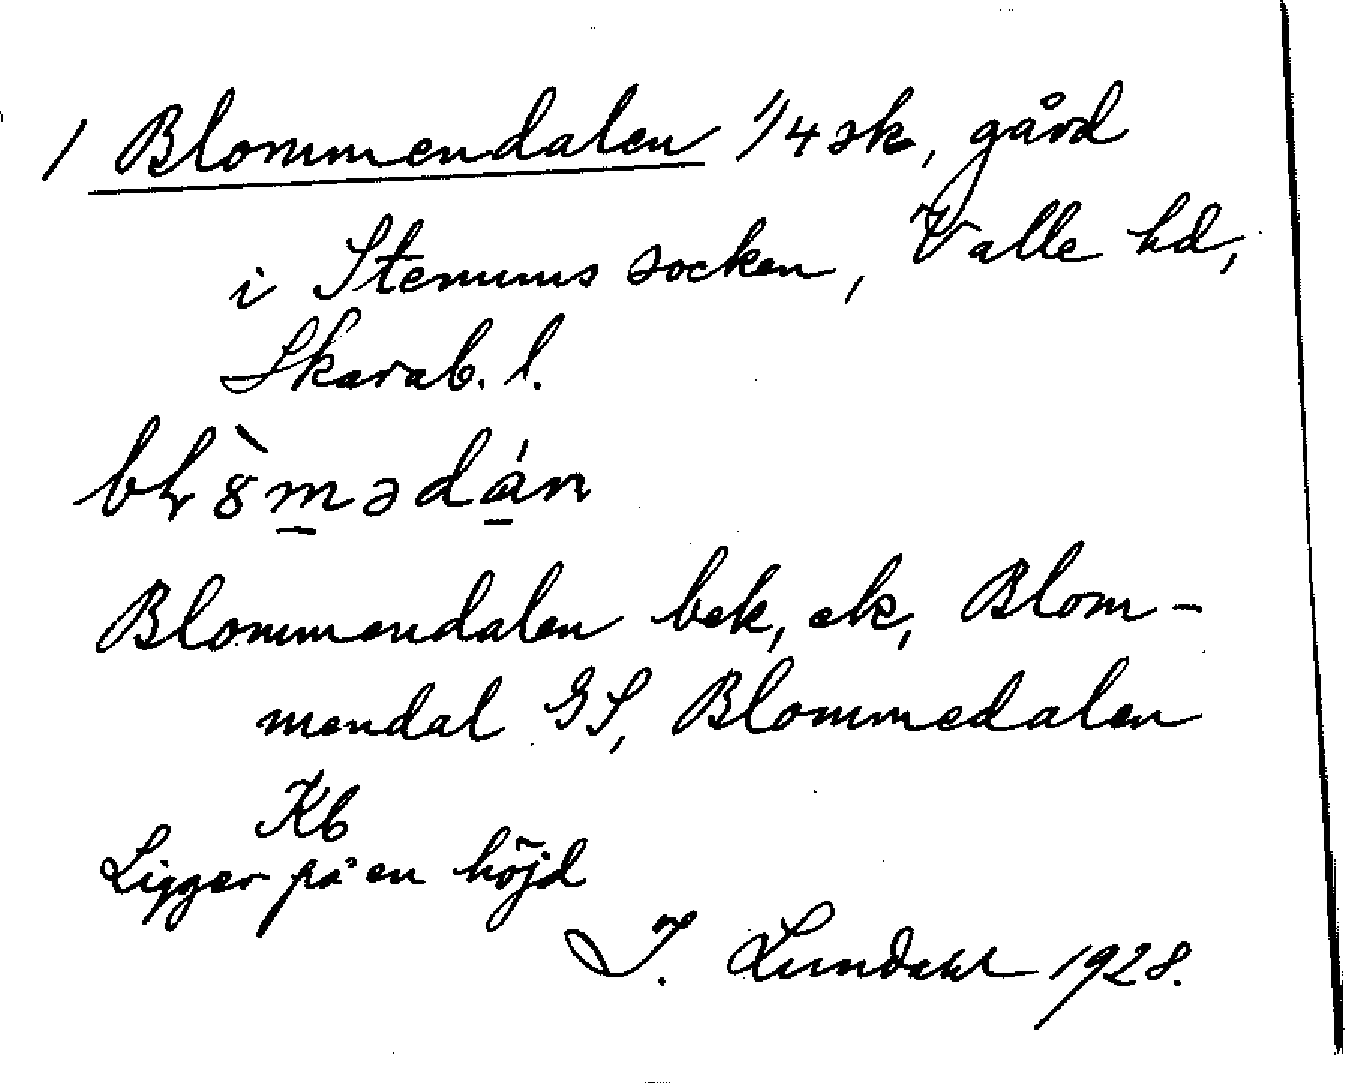 1 Blommendalen 1/4 sk, gård
i Stenums socken, Valle hd,
Skarab. l.
Blommendalen bek, ek, Blom-
mendal GS, Blommedalen
Kb
Ligger på en höjd
I. Lundahl 1928.